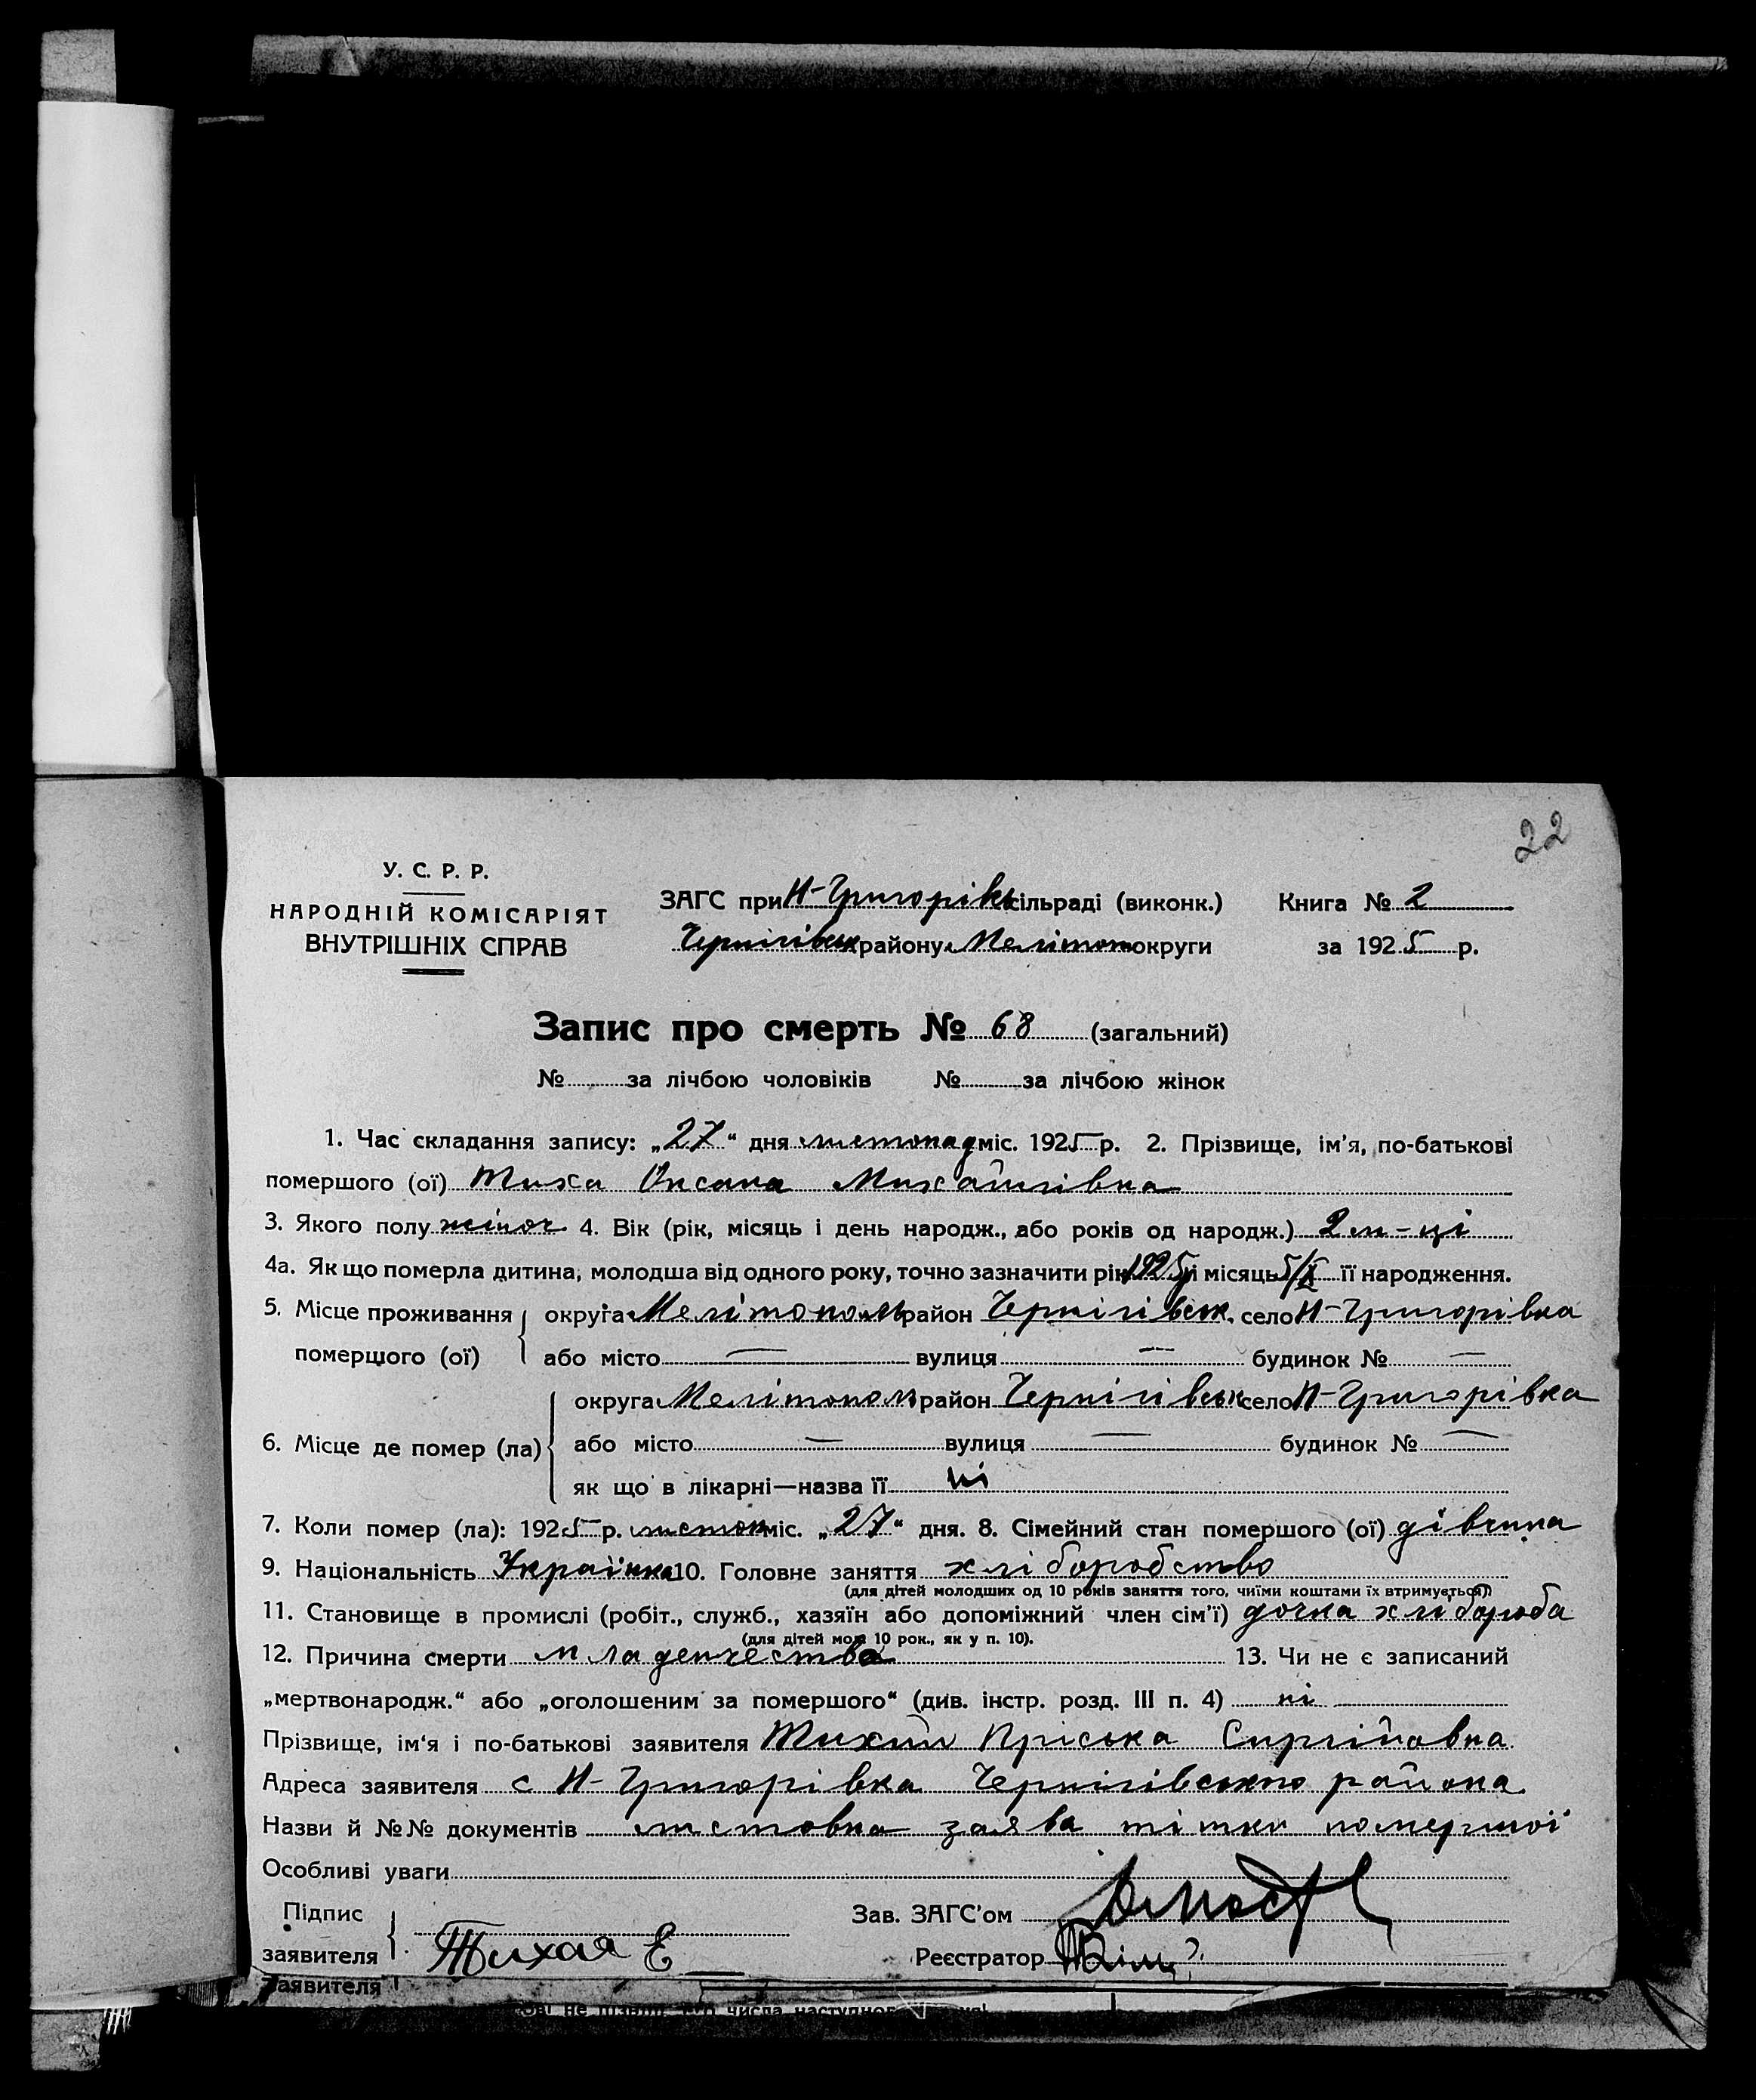 22
У. С. Р. Р.
НАРОДНІЙ КОМІСАРІЯТ
ВНУТРІШНІХ СПРАВ
ЗАГС при Н-Григорівс сільраді (виконк.) Книга № 2
Чернігівськ району Мелітоп округи за 1925 р.
Запис про смерть № 68 (загальний)
№ за лічбою чоловіків № за лічбою жінок
1. Час складання запису: „27“ дня листопад міс. 1925 р. 2. Прізвище, ім'я, по-батькові
помершого (ої) Тиха Оксана Михайлівна
3. Якого полу жіноч 4. Вік (рік, місяць і день народж., або років од народж.) 2 м-ці
4а. Як що померла дитина, молодша від одного року, точно зазначити рік 1925 і місяць 5/X її народження.
5. Місце проживання помершого (ої) округа Мелітополь район Чернігівськ. село Н-Григорівка
або місто — вулиця — будинок № —
6. Місце де помер (ла) округа Мелітопол район Чернігівськ село Н-Григорівка
або місто — вулиця — будинок № —
як що в лікарні—назва її ні
7. Коли помер (ла): 1925 р. листоп міс. „27“ дня. 8. Сімейний стан помершого (ої) дівчина
9. Національність Українка 10. Головне заняття хліборобство
(для дітей молодших од 10 років заняття того, чиїми коштами їх втримується)
11. Становище в промислі (робіт., служб., хазяїн або допоміжний член сім'ї) дочка хлібороба
(для дітей мол. 10 рок., як у п. 10).
12. Причина смерти младенчества 13. Чи не є записаний
„мертвонародж.“ або „оголошеним за помершого“ (див. інстр. розд. III п. 4) ні
Прізвище, ім'я і по-батькові заявителя Тихий Пріська Сиргійовна
Адреса заявителя с Н-Григорівка Чернігівського района
Назви й №№ документів листовна заява тітки помершої
Особливі уваги
Підпис заявителя Тихая Е Зав. ЗАГС'ом
Реєстратор
заявителя